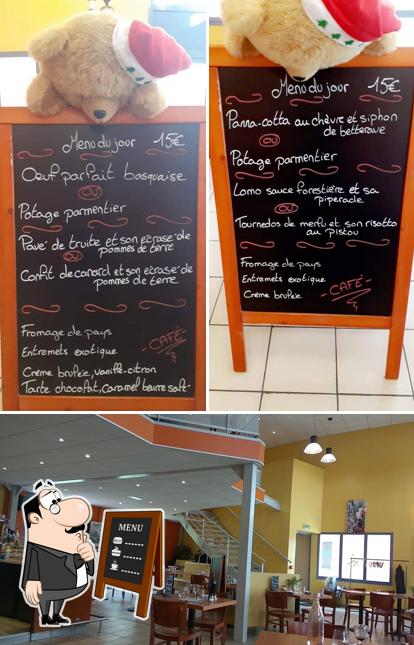 Menu du jour 15€
Oeuf parfait basquaise
ou
Potage parmentier
Pavé de truite et son écrase de
pommes de terre
ou
Confit de canard et son écrase de
pommes de terre
Fromage de pays
Entremets exotique
- CAFÉ -
Crème brulée, vanille-citron
Tarte chocolat, caramel beurre salé
Menu du jour 15€
Panna-cotta au chèvre et siphon
de betterave
ou
Potage parmentier
Lomo sauce forestière et sa
ou piperade
Tournedos de merlu et son risotto
au pistou
Fromage de pays
Entremets exotique
Crème brulée
- CAFÉ -
MENU